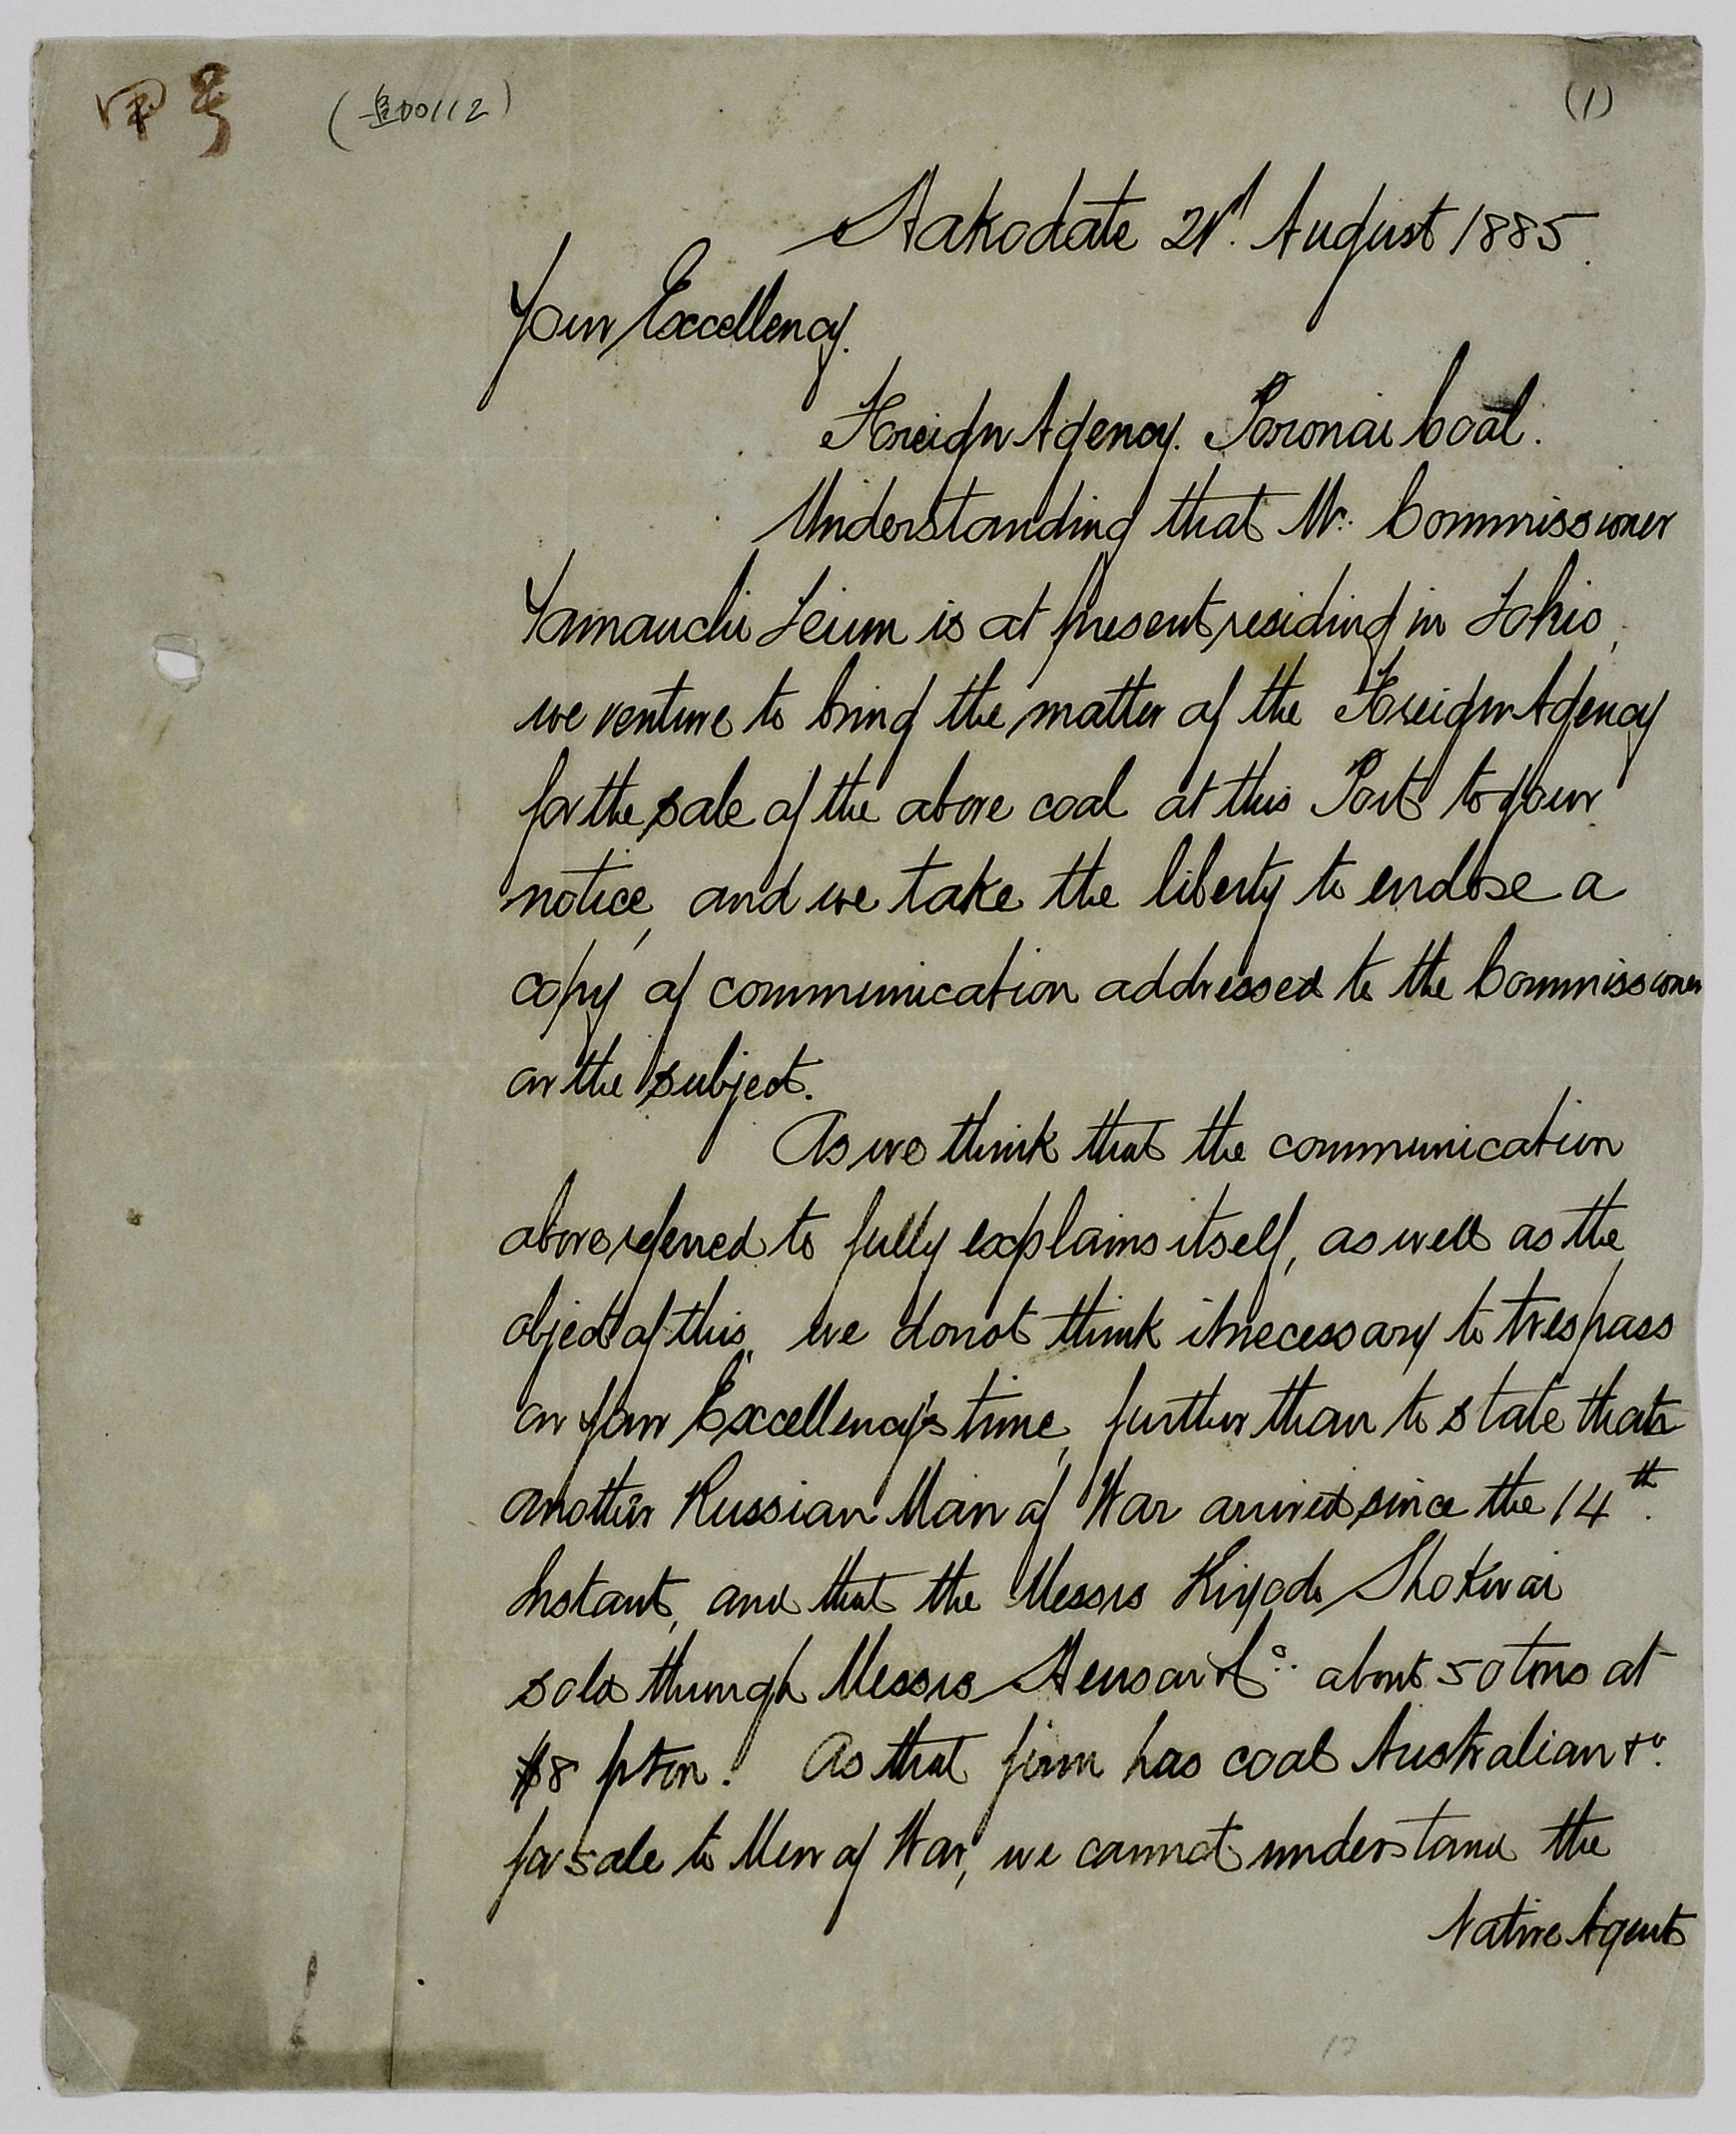 甲号 (00112) (1)
Hakodate 21st. August 1885.
Your Excellency.
Foreign Agency. Poronai Coal.
Understanding that Mr. Commissioner
Yamauchi Teium is at present residing in Tokio,
we venture to bring the matter of the Foreign Agency
for the sale of the above coal at this Port to your
notice, and we take the liberty to enclose a
copy of communication addressed to the Commissioner
on the subject.
As we think that the communication
above referred to fully explains itself, as well as the
object of this, we do not think it necessary to trespass
on your Excellency's time, further than to state that
another Russian Man of War arrived since the 14th.
Instant, and that the Messrs Kiyodo Shokwai
sold through Messrs Henson & Co. about 50 tons at
$8 p ton. As that firm has coal Australian &c.
for sale to Men of War, we cannot understand the
Native Agents